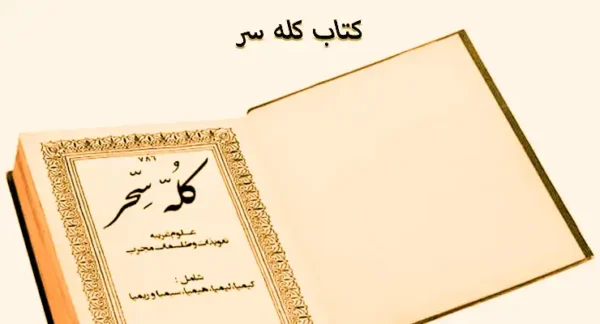 کتاب کله سر
۷۸۶
کلُّه سِحّر
علوم غریبه
تعویذات و طلسمات مجرب
شامل :
کیمیا، لیمیا، هیمیا، سیمیا و ریمیا